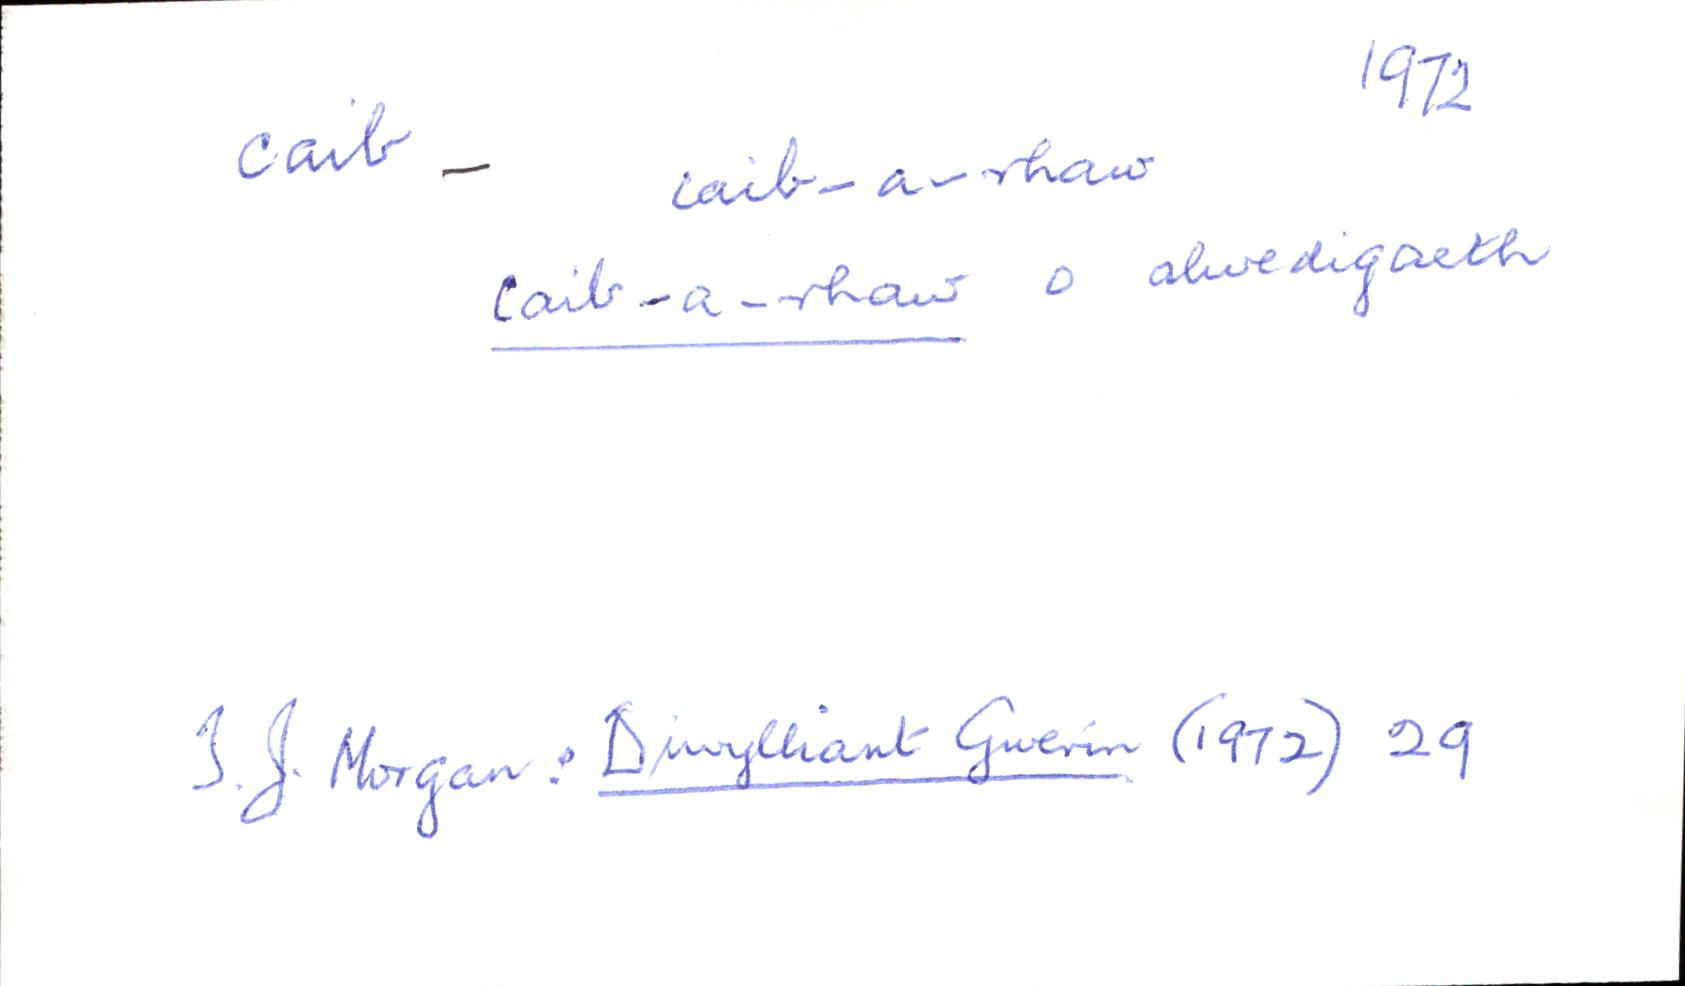 1972
caib - caib-a-rhaw
caib-a-rhaw o alwedigaeth
T. J. Morgan: Diwylliant Gwerin (1972) 29